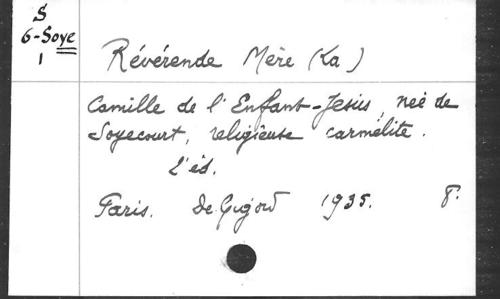 S
6-Soye
1
Révérende Mère (La)
Camille de l'Enfant-Jésus, née de
Soyecourt, religieuse carmélite.
2'éd.
Paris. de Gigord 1935. 8°.